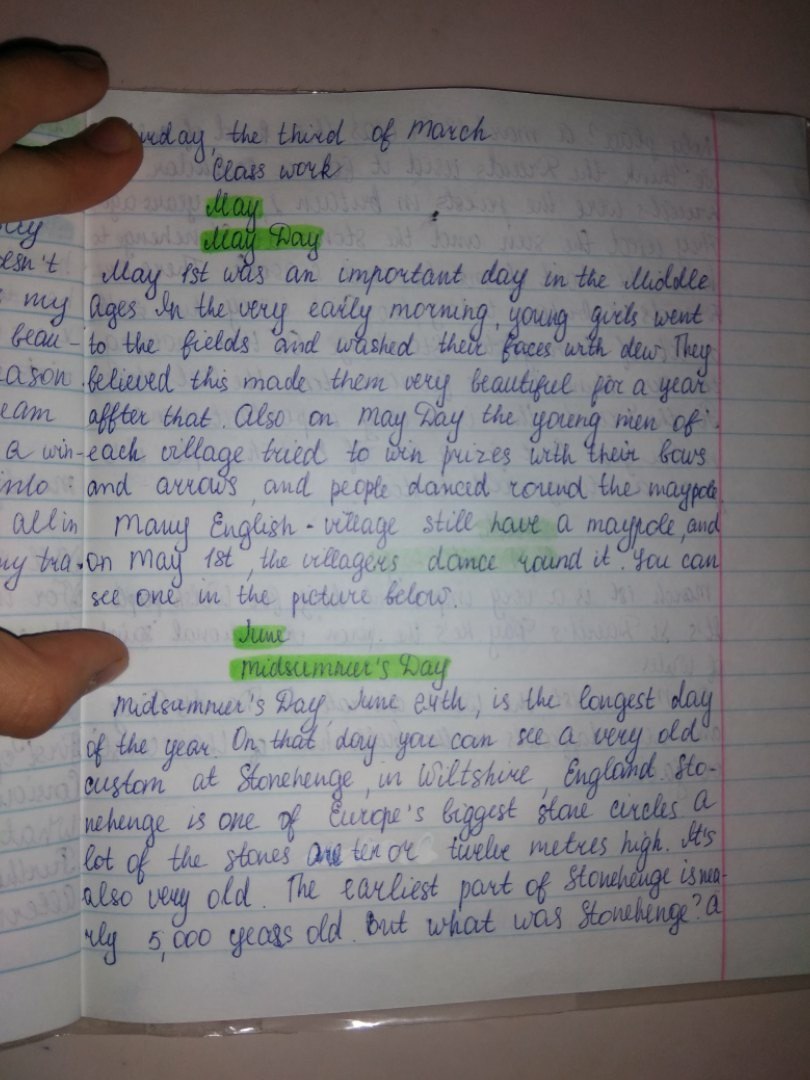 the third of March
Class work
May
May Day
May 1st was an important day in the Middle
Ages In the very early morning, young girls went
to the fields and washed their faces with dew. They
believed this made them very beautiful for a year
affter that. Also on May Day the young men of
each village tried to win prizes with their bows
and arrows, and people danced round the maypole
Many English - village still have a maypole, and
on May 1st, the villagers dance round it. You can
see one in the picture below.
June
Midsummer's Day
Midsummer's Day June 24th, is the longest day
of the year On that day you can see a very old
custom at Stonehenge, in Wiltshire, England. Sto-
nehenge is one of Europe's biggest stone circles A
lot of the stones are ten or twelve metres high. It's
also very old. The earliest part of Stonehenge is nea-
rly 5,000 years old. But what was Stonehenge? A
my
beau-
a win-
into
all in